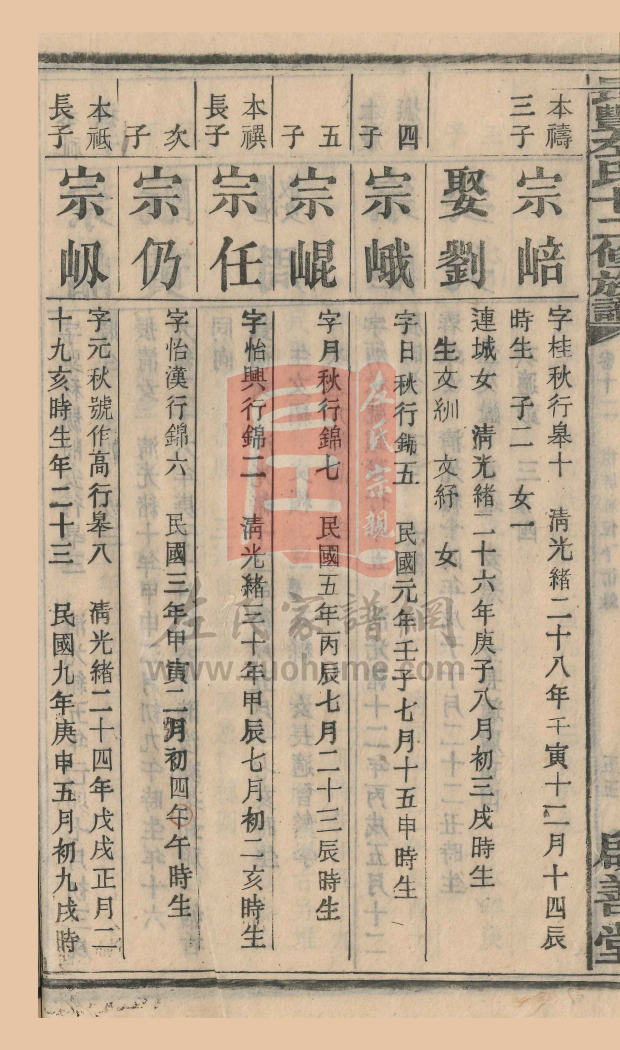 豐左氏十二修族譜
卷十一
啟善堂
本禱
三子
宗㟝
字桂秋行皋十 清光緒二十八年壬寅十二月十四辰
時生 子二 女一
娶劉
連城女 清光緒二十六年庚子八月初三戌時生
生文紃 文紓 女
四
子
宗峨
字日秋行錦五 民國元年壬子七月十五申時生
五
子
宗崐
字月秋行錦七 民國五年丙辰七月二十三辰時生
本禩
長子
宗任
字怡興行錦二 清光緒三十年甲辰七月初二亥時生
次
子
宗仍
字怡漢行錦六 民國三年甲寅二月初四午時生
本祇
長子
宗岋
字元秋號作高行皋八 清光緒二十四年戊戌正月二
十九亥時生年二十三 民國九年庚申五月初九戌時
左氏宗親
左氏家譜網
www.zuohome.com